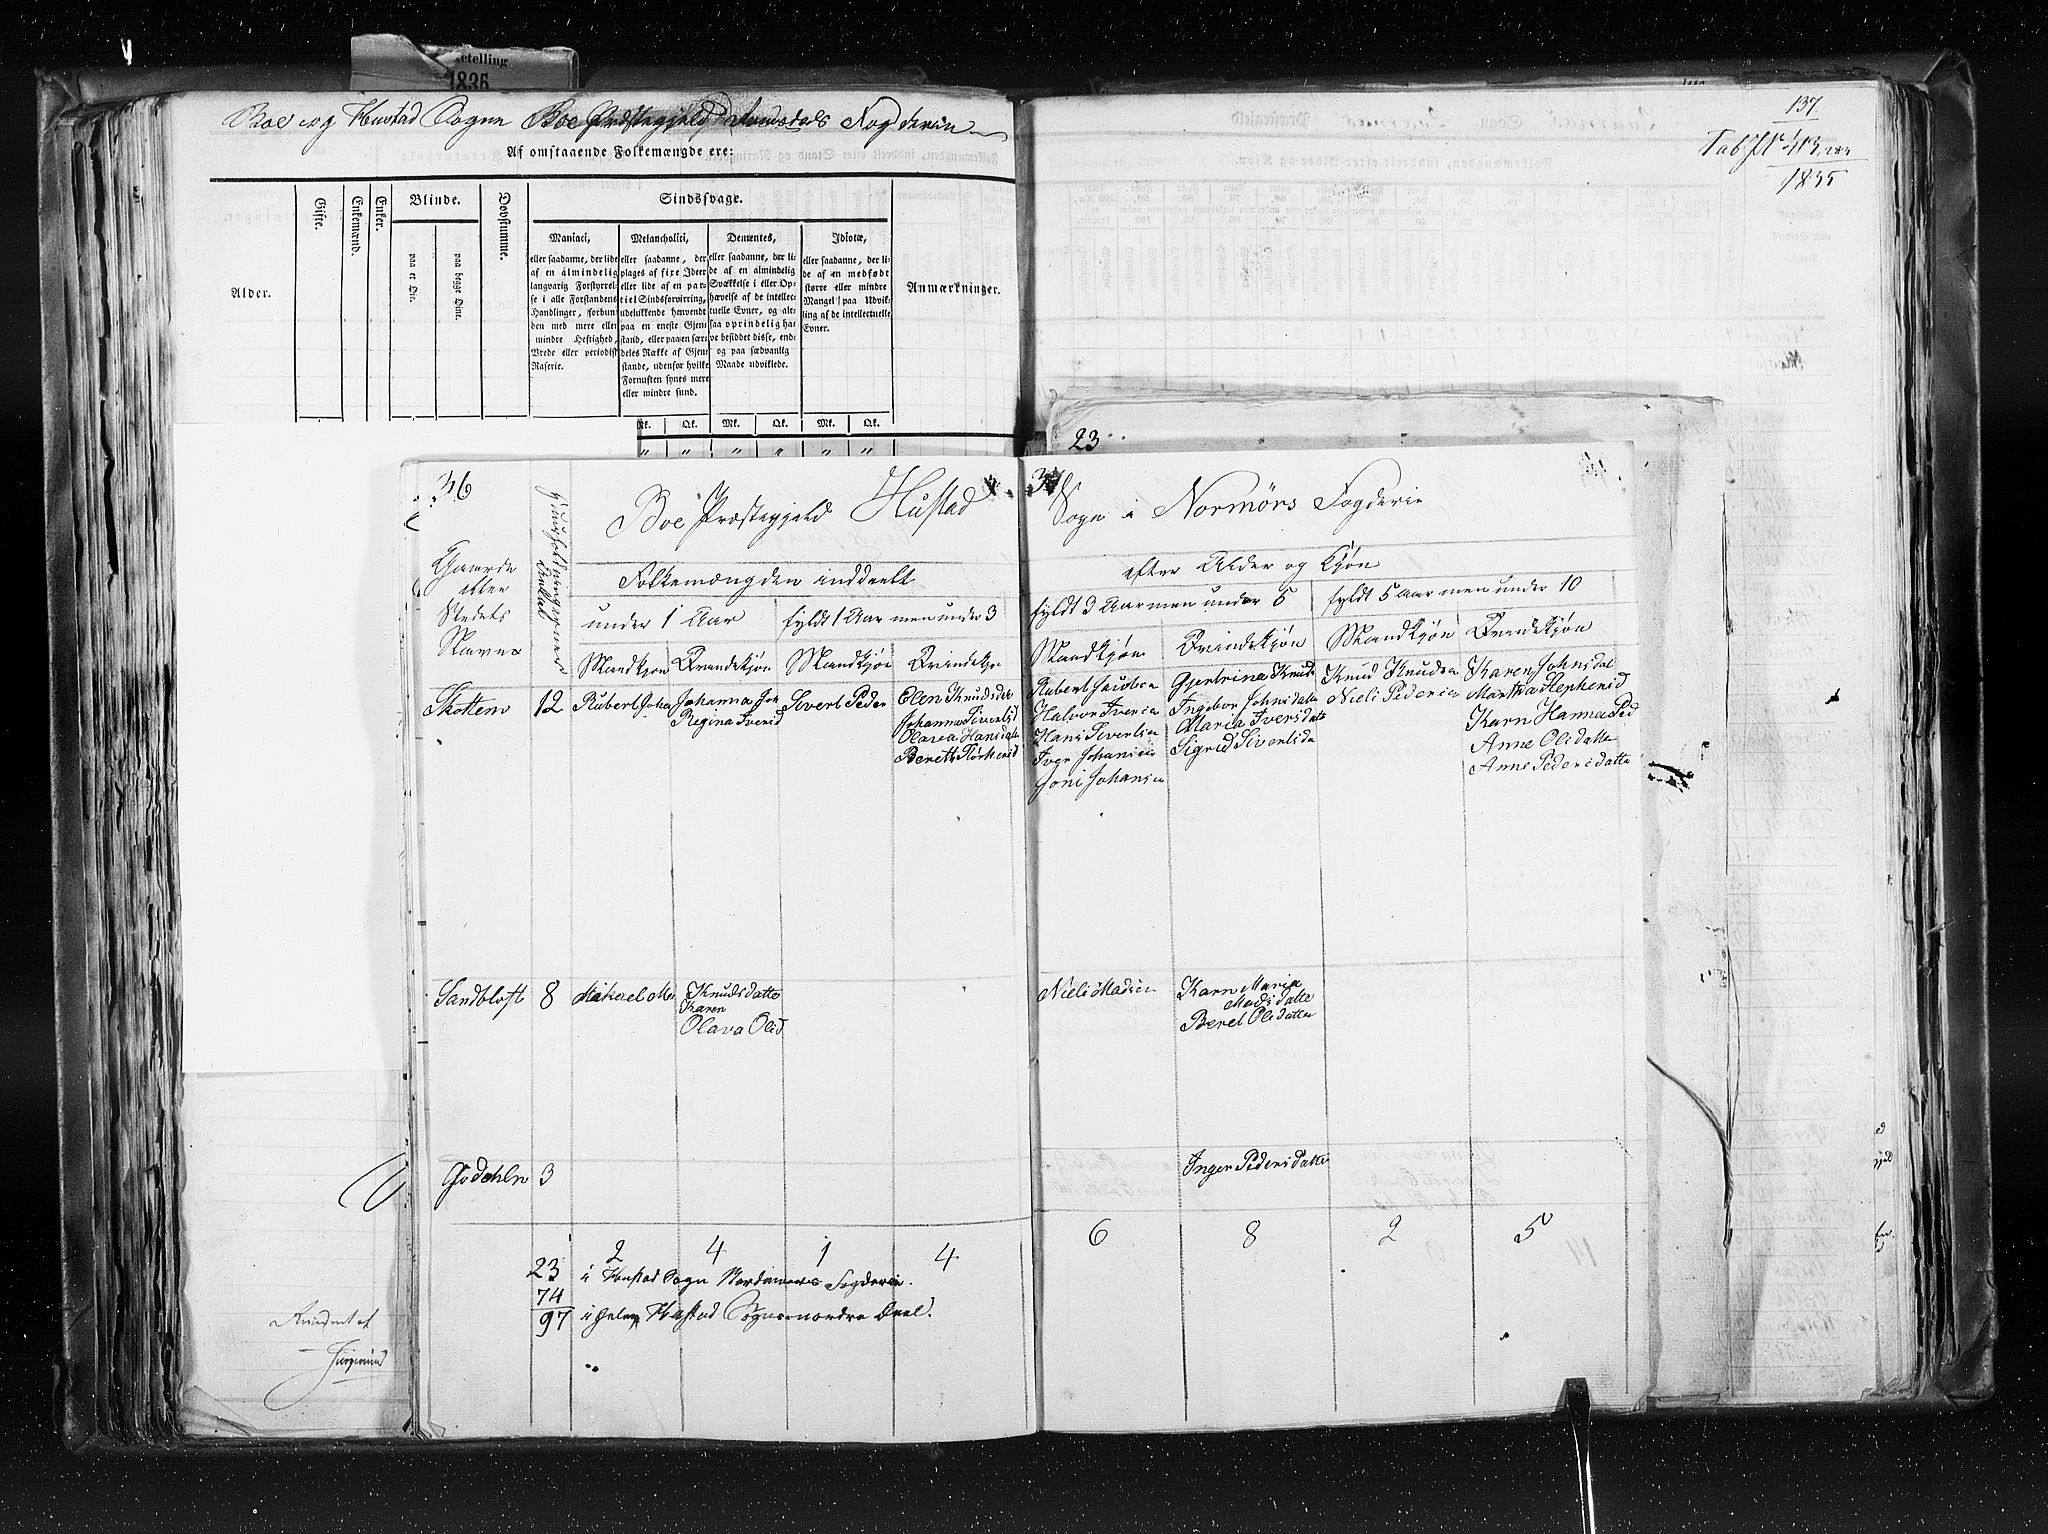 ketelling
1835
Boe og Hustad Sogne Boe Præstegjeld Romsdals Fogderie
Af omstaaende Folkemængde ere:
Alder.
Gifte.
Enkemænd.
Enker.
Blinde.
paa et Øie.
paa begge Øine.
Døvstumme.
Sindssvage.
Maniaci,
eller saadanne, der lide
af en almindelig
langvarig Forstyrrel-
se i alle Forstandens
Handlinger, forbun-
den med mere eller
mindre Heftighed,
Vrede eller periodisk
Raserie.
Melancholici,
eller saadanne, der
plages af fixe Ideer
eller lide af en par-
tiel Sindsforvirring,
udelukkende henvendt
paa en eneste Gjen-
stand, eller paa en sær-
deles Række af Gjen-
stande, udenfor hvilke
Fornuften synes mere
eller mindre sund.
Dementes,
eller saadanne, der li-
de af en almindelig
Svækkelse i eller Op-
hævelse af de intellec-
tuelle Evner, og alt-
saa oprindelig ha-
ve besiddet disse, end-
og paa sædvanlig
Maade udviklede.
Idiotæ,
eller saadanne, der li-
de af en medfødt
større eller mindre
Mangel paa Udvik-
ling af de intellectuelle
Evner.
Anmærkninger.
Mk. Qk. Mk. Qk. Mk. Qk.
" " " " " "
137
Tab No 413
1835
23
36
Boe Præstegjeld Hustad
37
Sogn i Normørs Fogderie
Gaarde
eller
Stedets
Navne
Huusholdningernes
Antal
Folkemængden inddeelt
efter Alder og Kjøn
under 1 Aar
fyldt 1 Aar men under 3
fyldt 3 Aar men under 5
fyldt 5 Aar men under 10
Mandkjøn Qvindekjøn Mandkjøn Qvindekjøn
Mandkjøn Qvindekjøn Mandkjøn Qvindekjøn
Skottem 12
Rubert Joha
Johanna Jon
Regina Iversd
Siverl Peder
Olen Knudsdat
Johanna Siverlsd
Olava Hansdatte
Berett
Rubert Jacobsen
Halvor Iversen
Hans Siverlsen
Iver Johansen
Joni Johansen
Gjertrina Knuds
Ingebor Johnsdatte
Maria Iversdatte
Sigrid Siverlsda
Knud Knudsen
Niels Pedersen
Karen Johnsdat
Martha Stephensd
Karn Hanna Ped
Anne Olsdatte
Anne Pedersdatte
Sandblost 8
Mikael Mo
Knudsdatte
Karen
Olava Olsd
Niels Madsen
Karn Maria
Madsdatte
Beret Olsdatte
Godahln 3
Inger Pedersdatte
2 4 1 4
6 8 2 5
23 i Hustad Sogn Nordmørs Fogderie.
74
97 i hele Hustad Sogns nordre Deel.
Revideret af